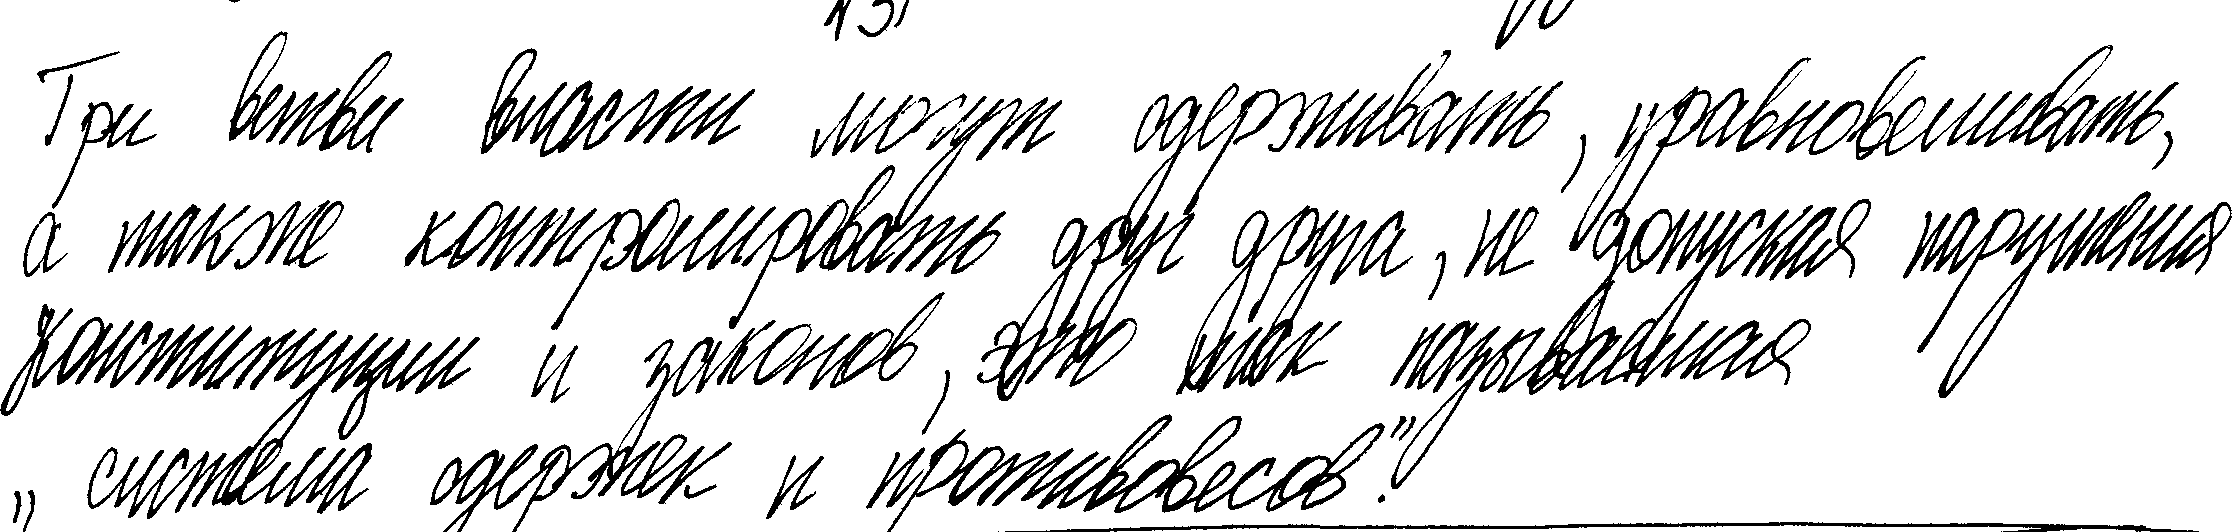 Три ветви власти могут сдерживать, уравновешивать,
а также контролировать друг друга, не допуская нарушения
Конституции и законов, это так называемая
„система сдержек и противовесов".